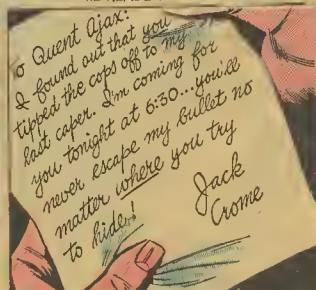 To Quent Ajax:
I found out that you
tipped the cops off to my
last caper. I'm coming for
you tonight at 6:30...you'll
never escape my bullet no
matter where you try
to hide!
Jack
Crome